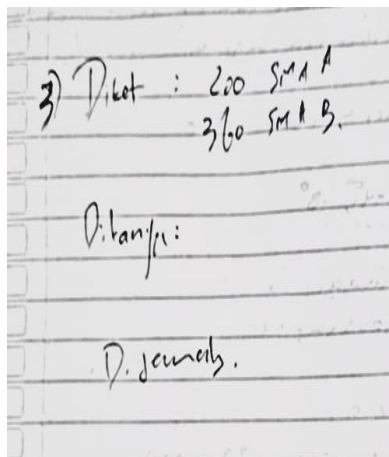 3) Diket : 200 SMA A
360 SMA B.
Ditanya:
Dijawab.